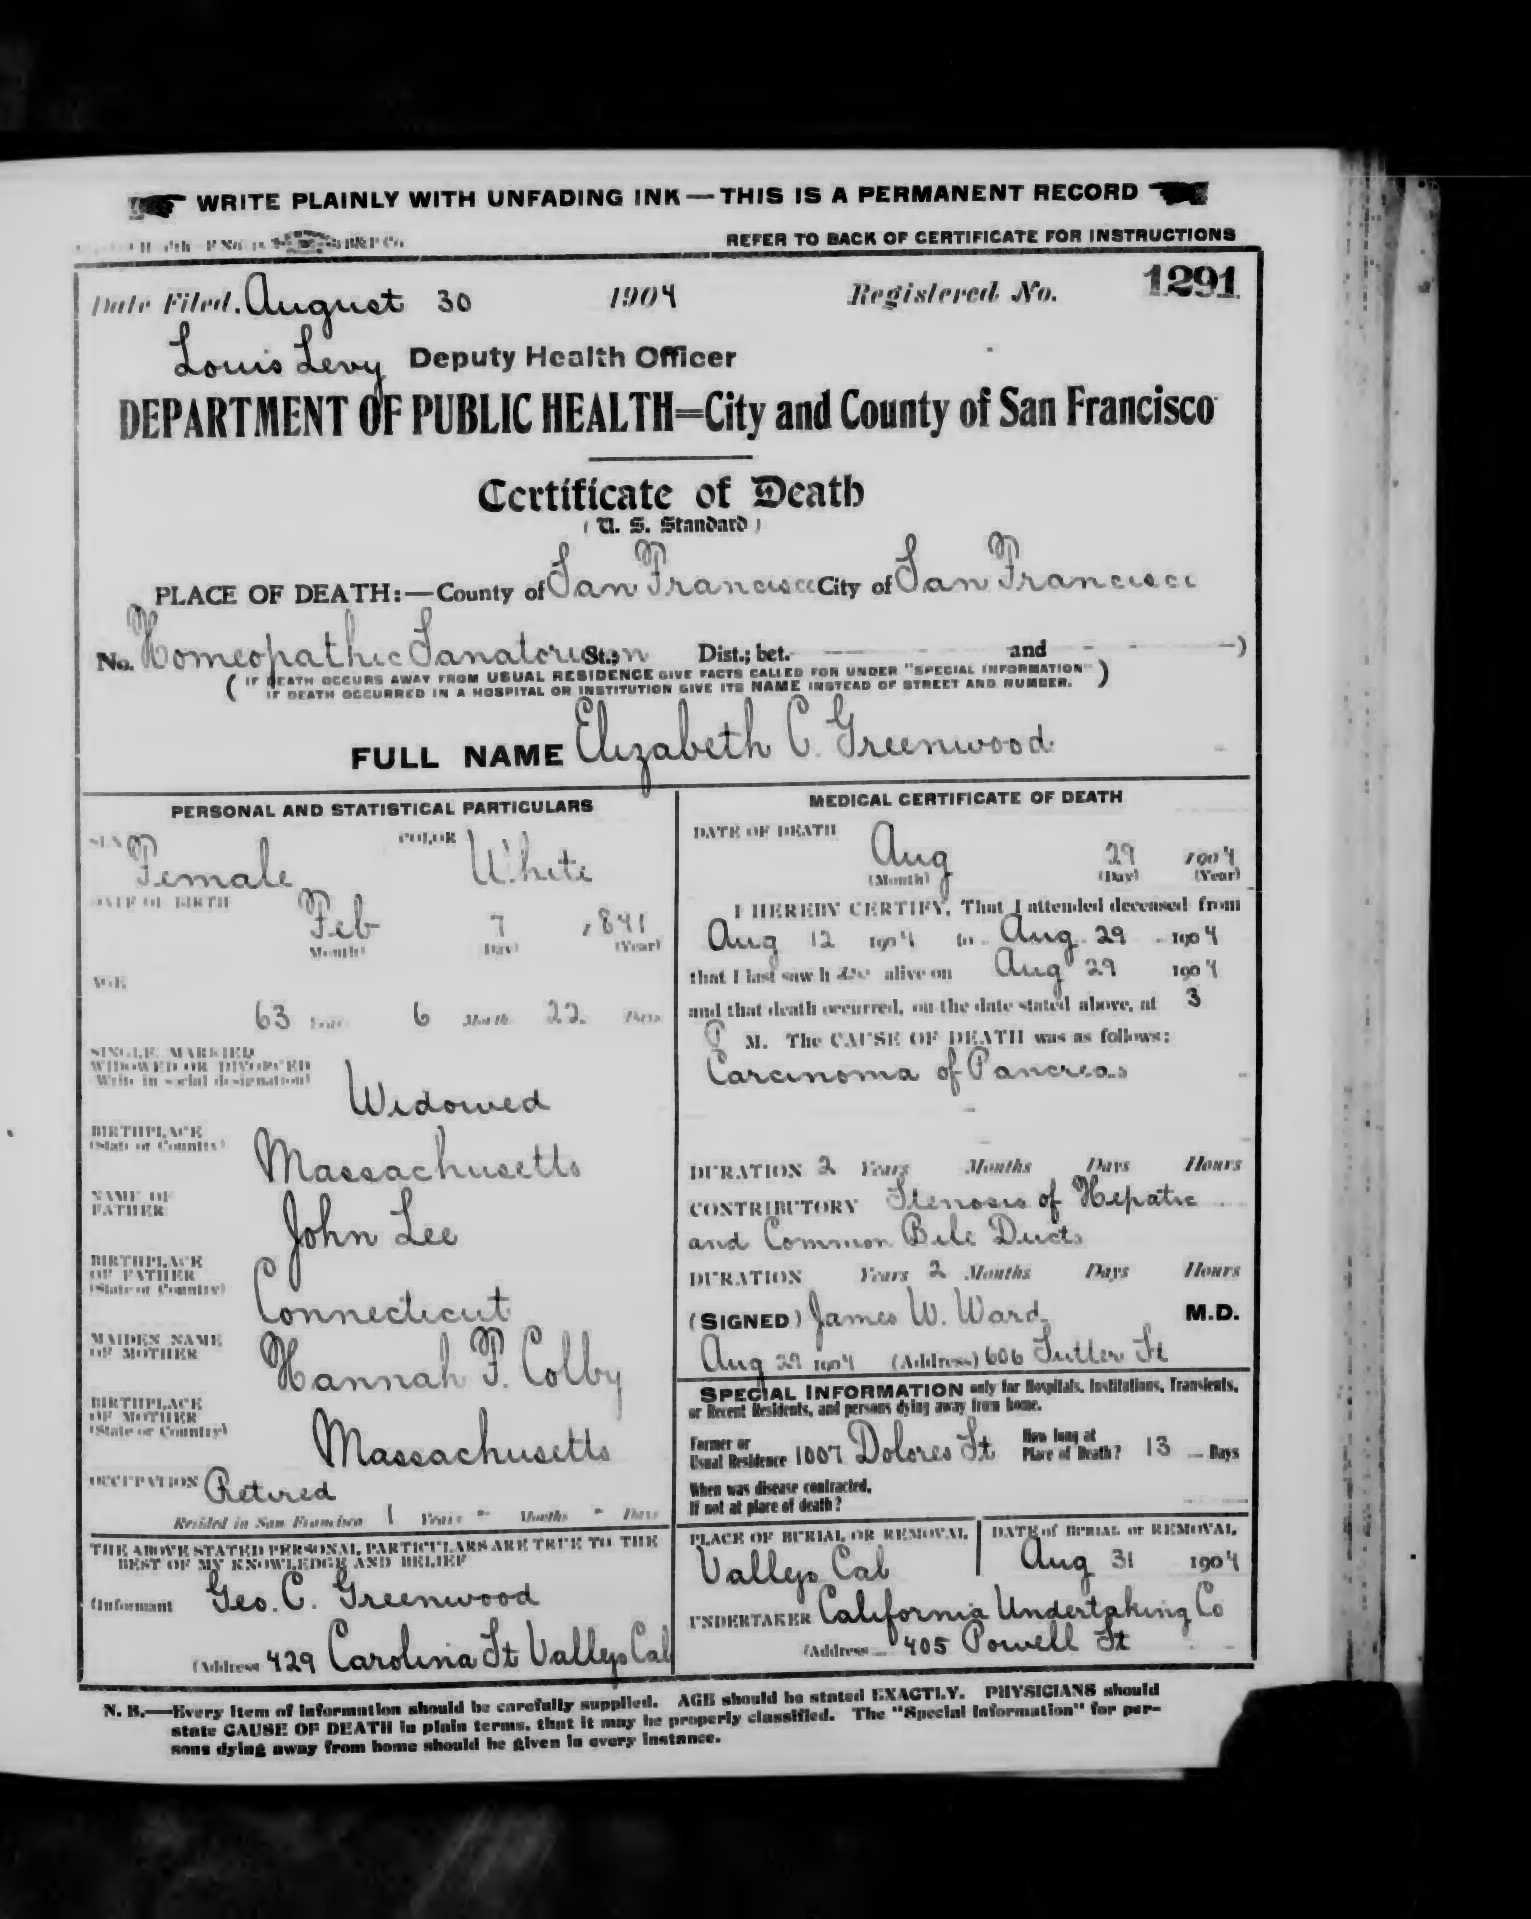 WRITE PLAINLY WITH UNFADING INK — THIS IS A PERMANENT RECORD
REFER TO BACK OF CERTIFICATE FOR INSTRUCTIONS
Date Filed, August 30 1904 Registered No. 1291
Louis Levy Deputy Health Officer
DEPARTMENT OF PUBLIC HEALTH=City and County of San Francisco
Certificate of Death
( U. S. Standard )
PLACE OF DEATH:—County of San Francisco City of San Francisco
No. Homeopathic Sanatorium St.; Dist.; bet. and )
( IF DEATH OCCURS AWAY FROM USUAL RESIDENCE GIVE FACTS CALLED FOR UNDER "SPECIAL INFORMATION" )
IF DEATH OCCURRED IN A HOSPITAL OR INSTITUTION GIVE ITS NAME INSTEAD OF STREET AND NUMBER.
FULL NAME Elizabeth C. Greenwood
PERSONAL AND STATISTICAL PARTICULARS
SEX Female COLOR White
DATE OF BIRTH Feb 7 1841
(Month) (Day) (Year)
AGE
63 Years 6 Months 22 Days
SINGLE, MARRIED
WIDOWED OR DIVORCED
(Write in social designation)
Widowed
BIRTHPLACE
(State or Country)
Massachusetts
NAME OF
FATHER
John Lee
BIRTHPLACE
OF FATHER
(State or Country)
Connecticut
MAIDEN NAME
OF MOTHER
Hannah F. Colby
BIRTHPLACE
OF MOTHER
(State or Country)
Massachusetts
OCCUPATION Retired
Resided in San Francisco 1 Years - Months - Days
THE ABOVE STATED PERSONAL PARTICULARS ARE TRUE TO THE
BEST OF MY KNOWLEDGE AND BELIEF
(Informant Geo. C. Greenwood
(Address 429 Carolina St Vallejo Cal
MEDICAL CERTIFICATE OF DEATH
DATE OF DEATH Aug 29 1904
(Month) (Day) (Year)
I HEREBY CERTIFY, That I attended deceased from
Aug 12 1904 to Aug. 29 1904
that I last saw h er alive on Aug 29 1904
and that death occurred, on the date stated above, at 3
P M. The CAUSE OF DEATH was as follows:
Carcinoma of Pancreas
DURATION 2 Years Months Days Hours
CONTRIBUTORY Stenosis of Hepatic
and Common Bile Ducts
DURATION Years 2 Months Days Hours
(SIGNED) James W. Ward. M.D.
Aug 29 1904 (Address) 606 Sutter St
SPECIAL INFORMATION only for Hospitals, Institutions, Transients,
or Recent Residents, and persons dying away from home.
Former or
Usual Residence 1007 Dolores St
How long at
Place of Death? 13 Days
When was disease contracted,
If not at place of death?
PLACE OF BURIAL OR REMOVAL
Vallejo Cal
DATE of BURIAL or REMOVAL
Aug 31 1904
UNDERTAKER California Undertaking Co
(Address 405 Powell St
N. B.—Every item of information should be carefully supplied. AGE should be stated EXACTLY. PHYSICIANS should
state CAUSE OF DEATH in plain terms, that it may be properly classified. The "Special Information" for per-
sons dying away from home should be given in every instance.